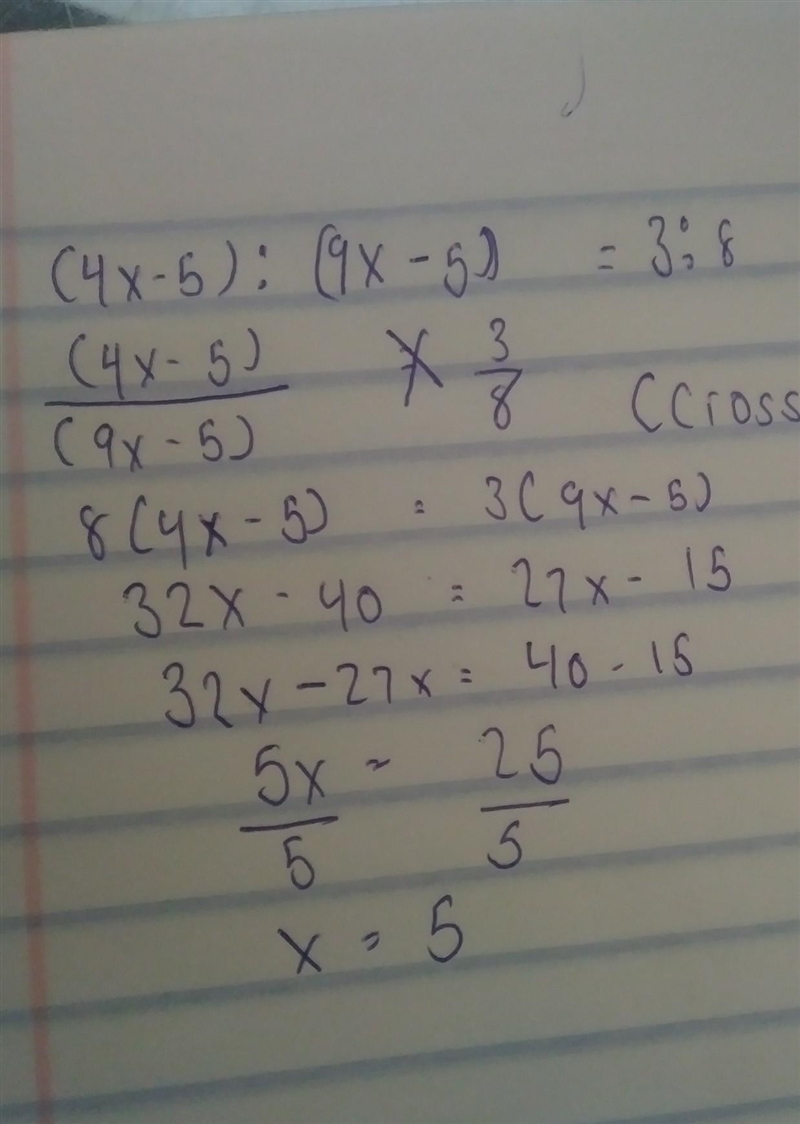 (4x-5) : (9x-5) = 3:8
(4x-5) / (9x-5) X 3/8 (Cross
8(4x-5) = 3(9x-5)
32x - 40 = 27x - 15
32x - 27x = 40 - 15
5x/5 = 25/5
x = 5